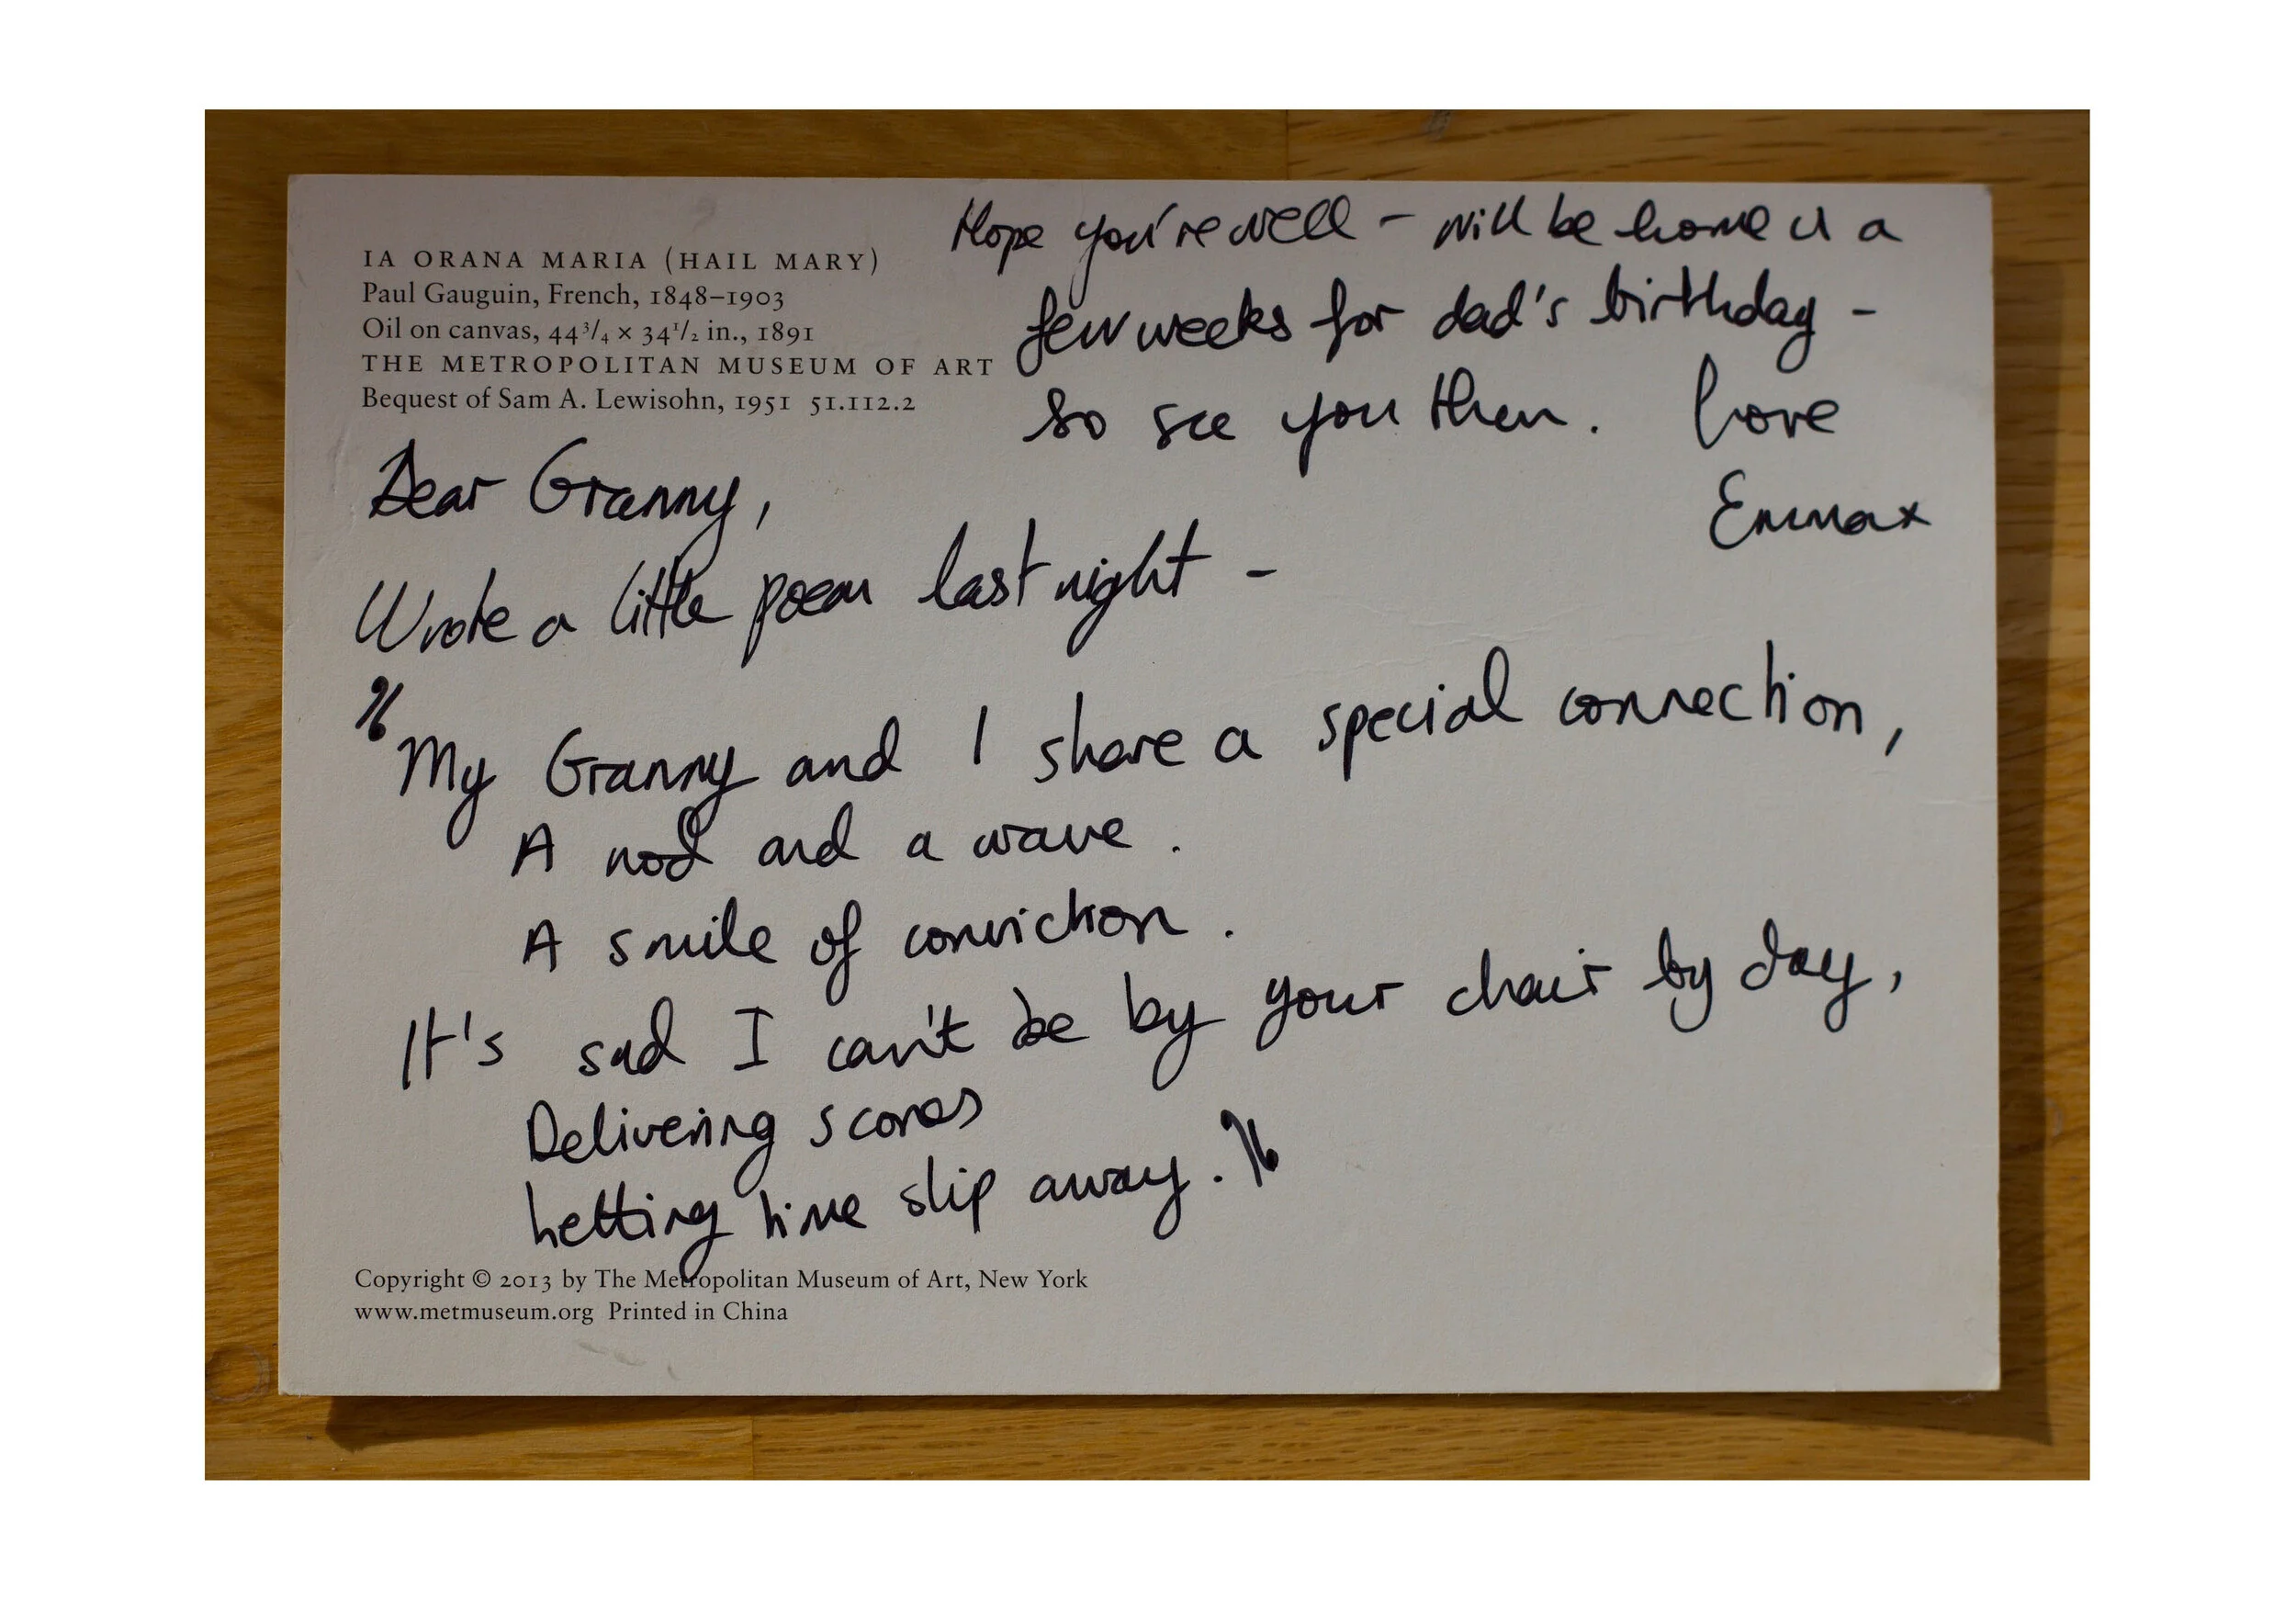 IA ORANA MARIA (HAIL MARY)
Paul Gauguin, French, 1848–1903
Oil on canvas, 44³/₄ × 34¹/₂ in., 1891
THE METROPOLITAN MUSEUM OF ART
Bequest of Sam A. Lewisohn, 1951 51.112.2
Dear Granny,
Wrote a little poem last night -
"My Granny and I share a special connection,
A nod and a wave.
A smile of conviction.
It's sad I can't be by your chair by day,
Delivering scones
Letting time slip away."
Hope you're well - will be home in a
few weeks for dad's birthday -
so see you then. Love
Emma x
Copyright © 2013 by The Metropolitan Museum of Art, New York
www.metmuseum.org Printed in China